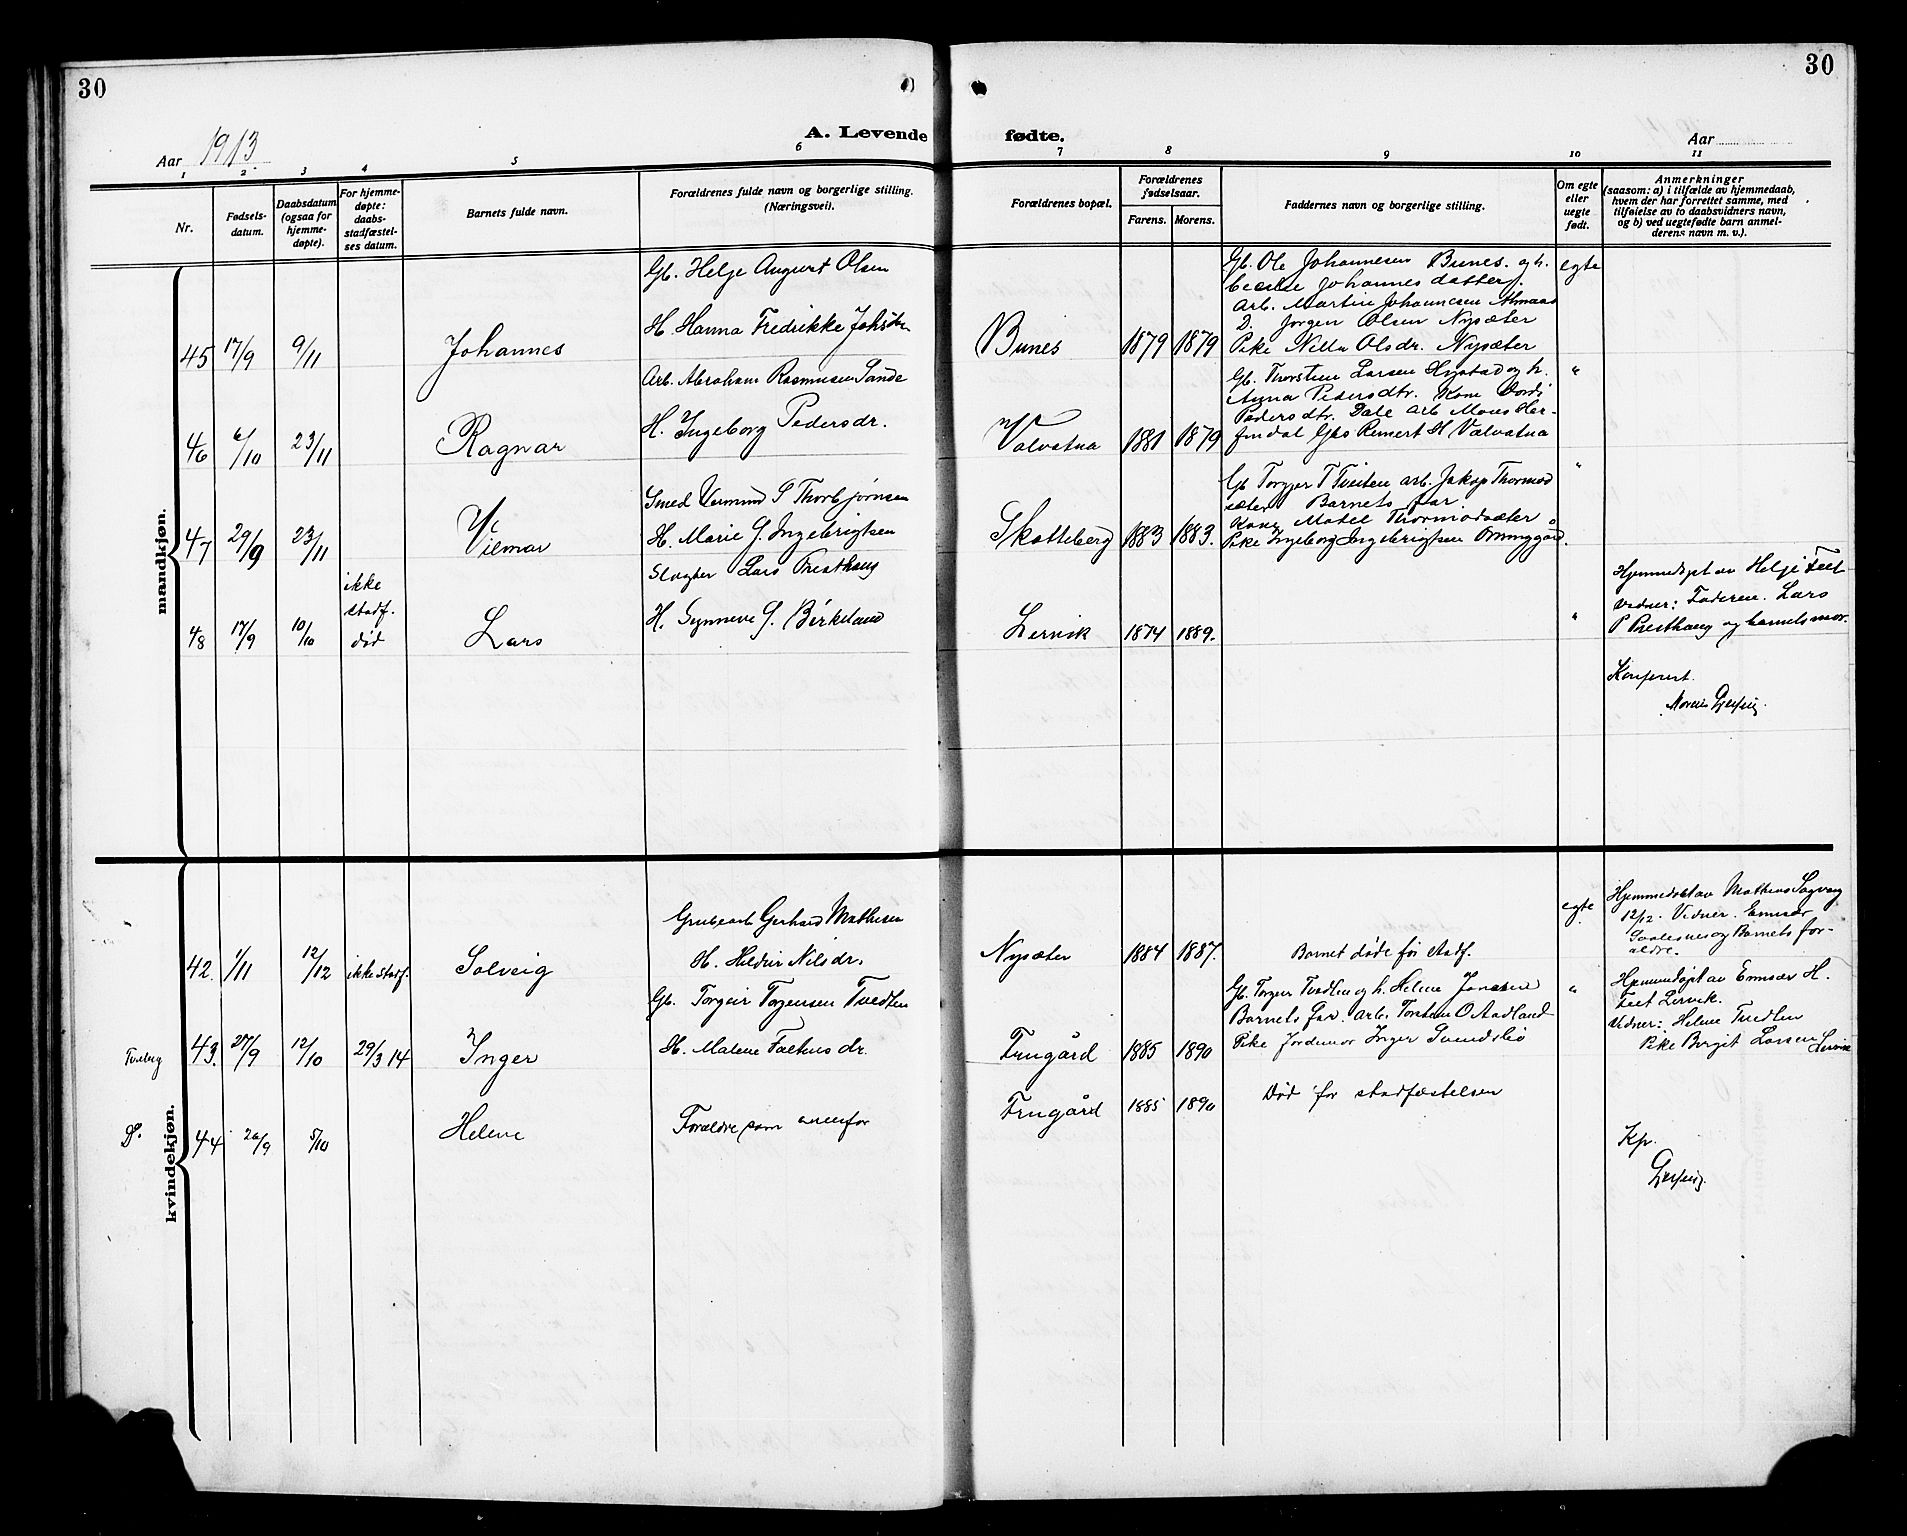 30
30
A. Levende fødte.
Aar 1913.
Aar
1 2. 3 4 5 6 7 8 9 10 11
Nr.
Fødsels-
datum.
Daabsdatum
(ogsaa for
hjemme-
døpte).
For hjemme-
døpte:
daabs-
stadfæstel-
ses datum.
Barnets fulde navn.
Forældrenes fulde navn og borgerlige stilling.
(Næringsvei).
Forældrenes bopæl.
Forældrenes
fødselsaar.
Farens. Morens.
Faddernes navn og borgerlige stilling.
Om egte
eller
uegte
født.
Anmerkninger
(saasom: a) i tilfælde av hjemmedaab,
hvem der har forrettet samme, med
tilføielse av to daabsvidners navn,
og b) ved uegtefødte barn anmel-
derens navn m. v.).
mandkjøn.
45 17/9 9/11 Johannes
Gb. Helje August Olsen
H. Hanna Fredrikke
Bunes 1879 1879
Gb. Ole Johannesen Bunes. og h.
Johannesdatter.
Arb. Martin Johannesen
D. Jørgen Olsen Nysæter
Pike Nilla Olsdr. Nysæter
egte
46 6/10 23/11 Ragnar
Arb. Abraham Rasmusen Sande
H. Ingeborg Pedersdr.
Valvatna 1881 1879
Gb. Thorstein Larsen Hystad og h.
Anna Pedersdtr. Kone
Pedersdtr. Dale arb Mons Her-
findal Gbs Reinert H Valvatna
"
47 29/9 23/11 Vilmar
Smed S Thorbjørnsen
H. Marie G. Ingebrigtsen
Skotteberg 1883 1883.
Gb Torgjer T Tveiten arb. Jakop Thormod
sæter Barnets far
Kone Thormodsæter
Pike Ingeborg Ingebrigtsen
"
48 17/9 10/10 ikke
stadf.
død
Lars
Slagter Lars Presthaug
H. Synneve G. Birkeland
Lervik 1874 1889.
"
Hjemmedøpt av Helje Feet
Vidner: Faderen. Lars
P Presthaug og barnets mor.
Konferert.
kvindekjøn.
42. 1/11 12/12 ikke stadf. Solveig
Grubearb Gerhard Mathisen
H. Nilsdr.
Nysæter 1884 1887.
Barnet døde før stadf.
egte
Hjemmedøbt av Mathias Sagvag
12/12. Vidner.
og Barnets for-
ældre.
43. 27/9 12/10 29/3 14 Inger
Gb. Torgeir Torgersen Tvedten
H. Malene Falkusdr.
Frugård 1885 1890
Gb. Torgeir Tvedten og h. Helene
Barnets far. Arb. Torstein O Aadland
Pike Jordemor Inger Svendsbø
"
Hjemmedøpt av H.
Feet Lervik.
Vidner: Helene Tvedten
Pike Borgit Larsen Lervik
44 26/9 5/10 Helene
Forældre som ovenfor
Frugård 1885 1890
Død før stadfæstelsen
Kp.